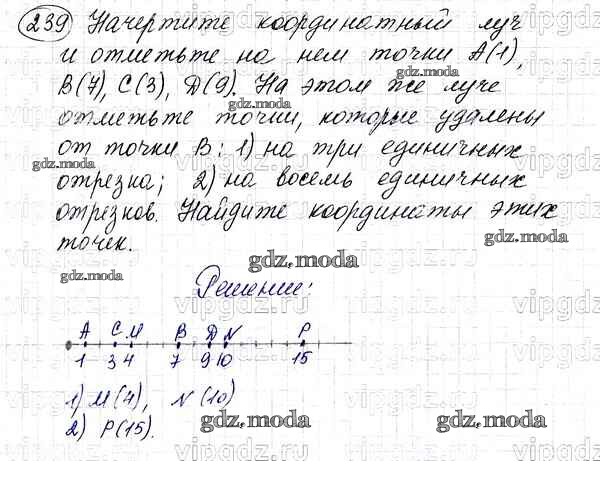 239 Начертите координатный луч
и отметьте на нем точки А(1),
В(7), С(3), D(9). На этом же луче
отметьте точки, которые удалены
от точки В: 1) на три единичных
отрезка; 2) на восемь единичных
отрезков. Найдите координаты этих
точек.
Решение:
А С М В D N Р
1 3 4 7 9 10 15
1) М(4), N(10)
2) Р(15).
gdz.moda
gdz.moda
gdz.moda
gdz.moda
gdz.moda
gdz.moda
gdz.moda
gdz.moda
vipgdz.ru